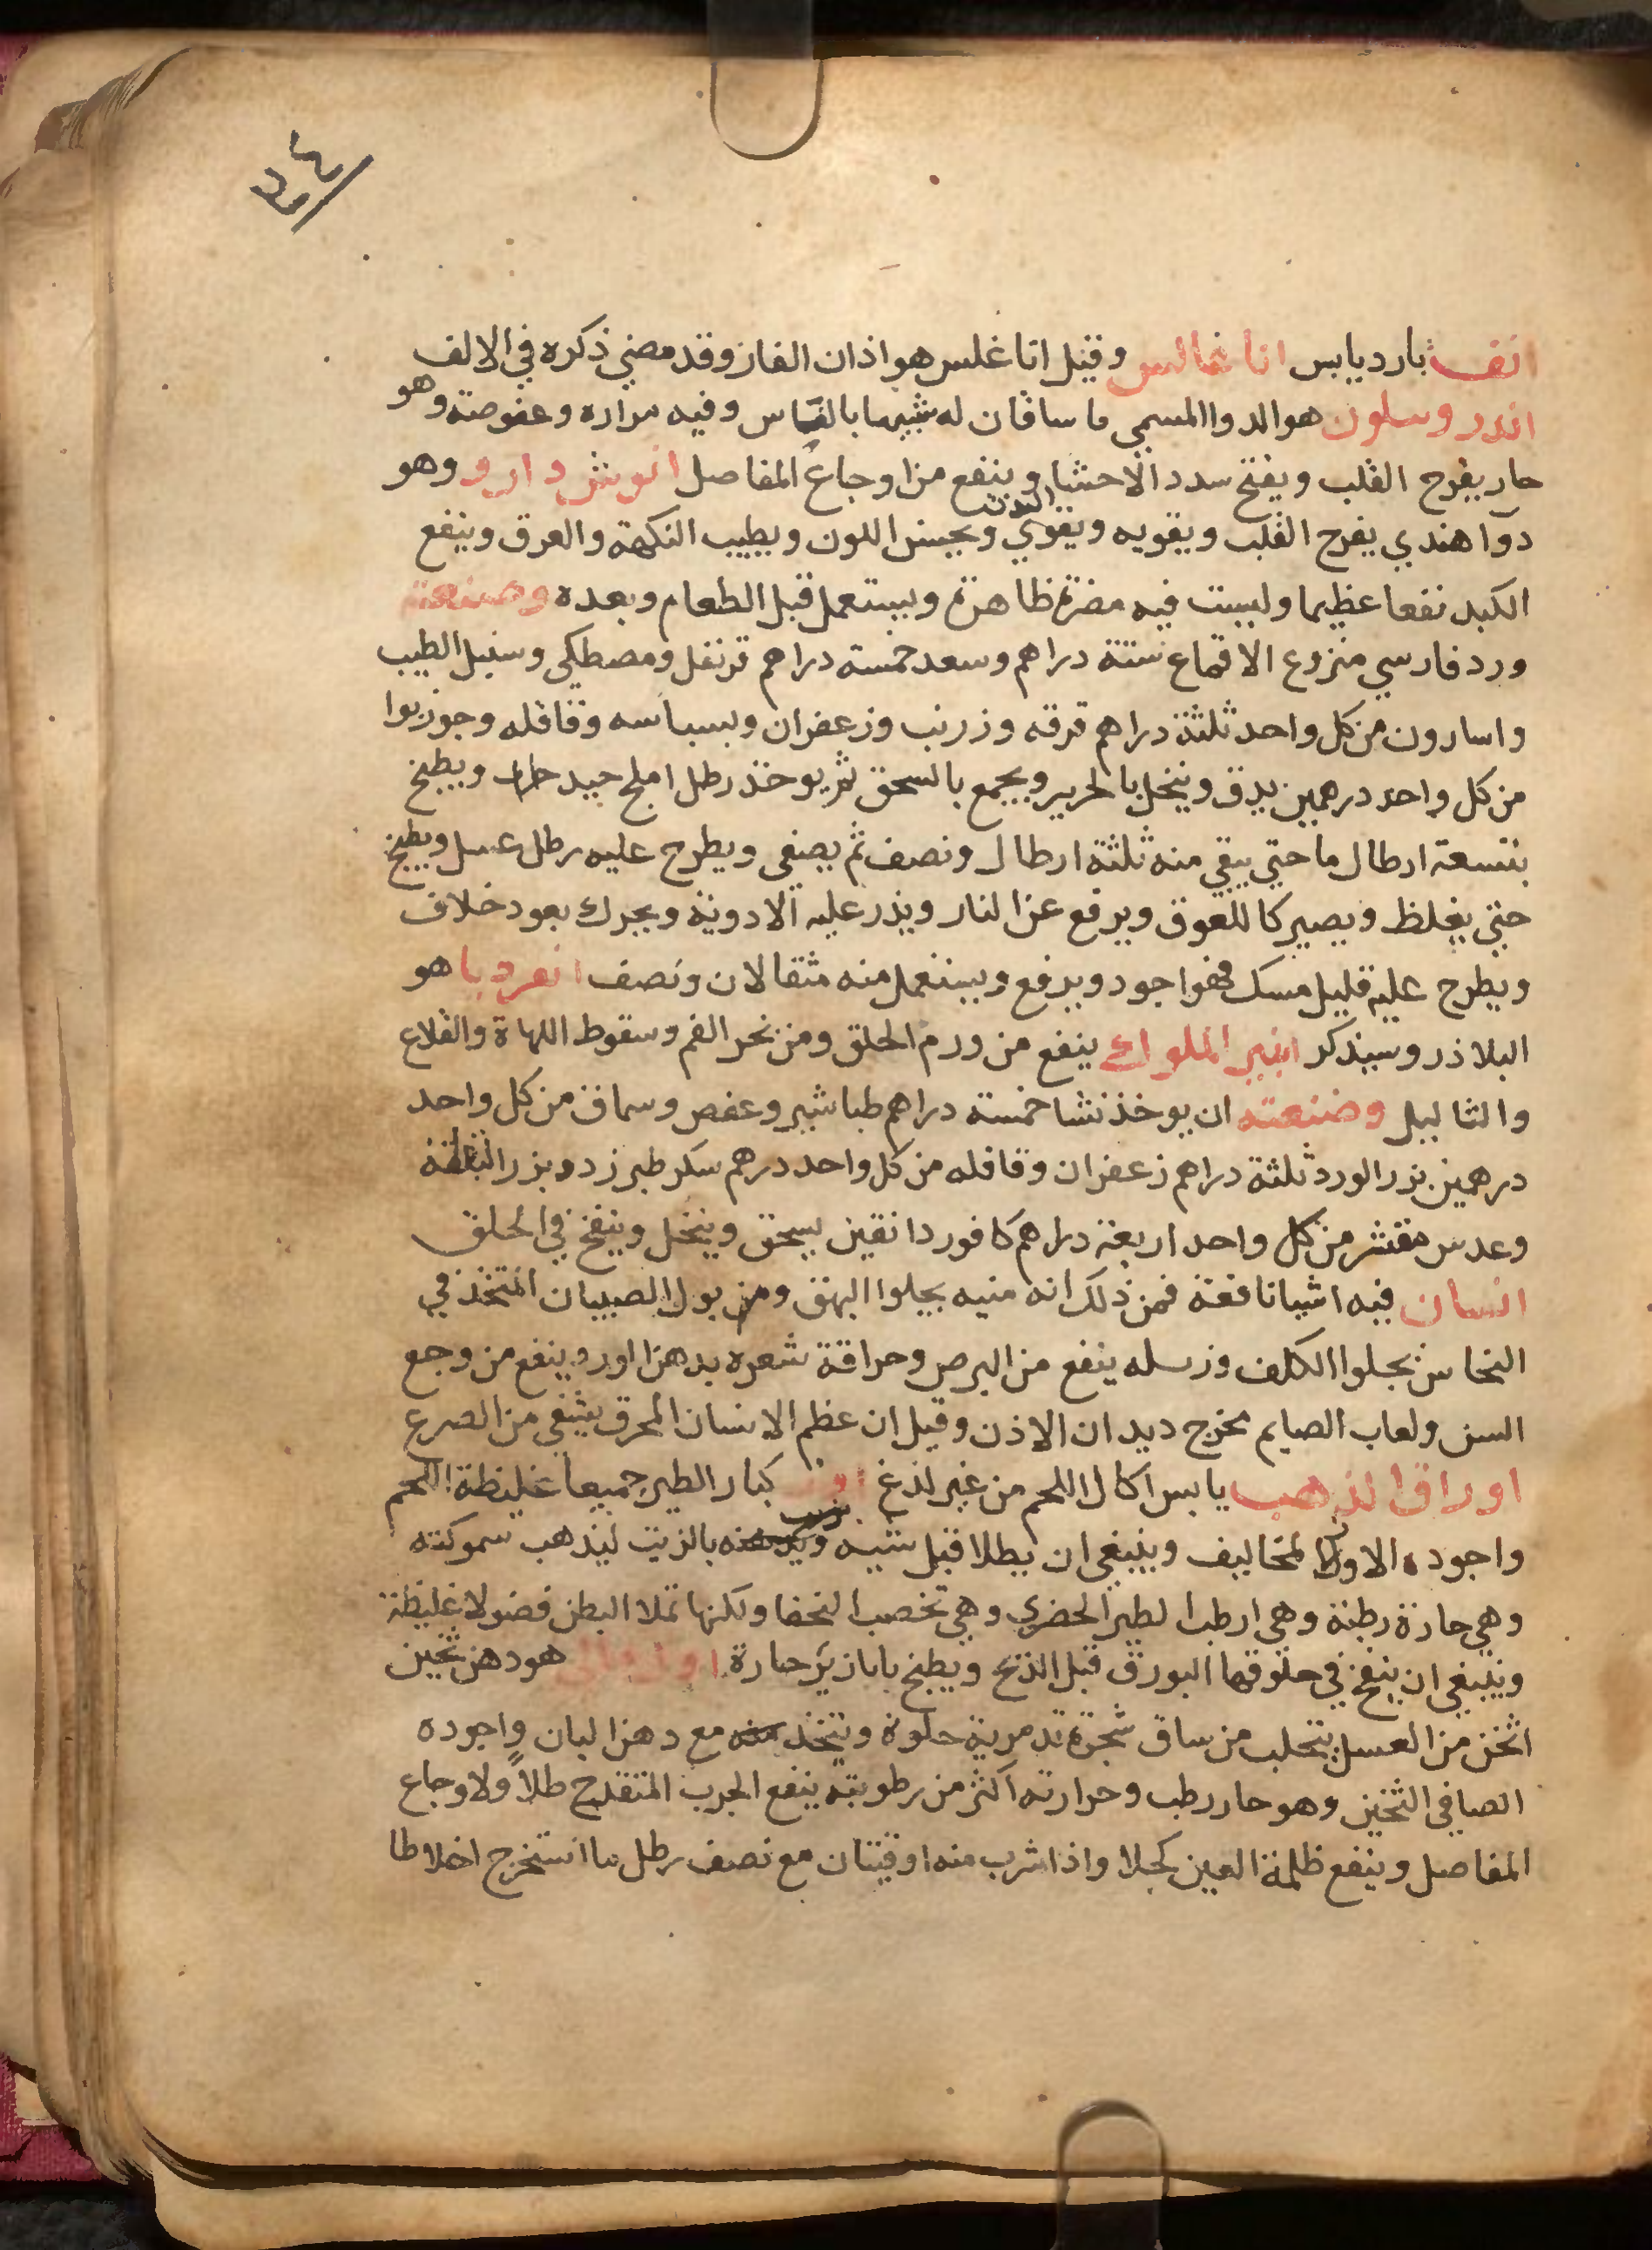 ٣٤
انف بارد يابس انا غالس وقيل اناغلس هو اذان الفار وقد مضي ذكره في الالف
اندروسلون هو الدوا المسمي ماسافان له شبيها بالقاس وفيه مراره وعفوصته وهو
حار يفرح القلب ويفتح سدد الاحشا وينفع من اوجاع المفاصل انوشدارو وهو
دوا هندي يفرح القلب ويقويه ويقوي البدن ويحسن اللون ويطيب النكهة والعرق وينفع
الكبد نفعا عظيما وليست فيه مضرة ظاهرة ويستعمل قبل الطعام وبعده وصنعته
ورد فارسي منزوع الاقماع ستة دراهم وسعد خمسة دراهم قرنفل ومصطكي وسنبل الطيب
واسارون من كل واحد ثلثة دراهم قرفه وزرنب وزعفران وبسباسه وقاقله وجوزبوا
من كل واحد درهمين يدق وينخل بالحرير ويجمع بالسحق ثم يوخذ رطل املج جيد ويطبخ
بتسعة ارطال ما حتي يبقي منه ثلثة ارطال ونصف ثم يصفى ويطرح عليه رطل عسل ويطبخ
حتي يغلظ ويصير كاللعوق ويرفع عن النار ويذر عليه الادوية ويحرك بعود خلاف
ويطرح عليه قليل مسك فهو اجود ويرفع ويستعمل منه مثقالان ونصف انفرديا هو
البلاذر وسيذكر انبر الملوك ينفع من ورم الحلق ومن نحر الفم وسقوط اللهاة والقلاع
والثاليل وصنعته ان يوخذ نشا خمسة دراهم طباشير وعفص وسماق من كل واحد
درهمين بزر الورد ثلثة دراهم زعفران وقاقله من كل واحد درهم سكر طبرزد وبزر البقلة
وعدس مقشر من كل واحد اربعة دراهم كافور دانقين يسحق وينخل وينفخ في الحلق
انسان فيه اشيا نافعة فمن ذلك انه منيه يجلوا البهق ومن بول الصبيان المتخذ في
النحاس يجلوا الكلف وزبله ينفع من البرص وحراقة شعره بدهن اورد ينفع من وجع
السن ولعاب الصايم يخرج ديدان الاذن وقيل ان عظم الانسان المحرق يشفى من الصرع
اوراق الذهب يابس اكال اللحم من غير لذغ اوز كبار الطير جميعا غليظة اللحم
واجوده الاوزا لمخاليف وينبغي ان يطلا قبل شيه بالزيت ليذهب سموكته
وهي حارة رطبة وهي ارطب الطير الحضري وهي تخصب النحفا ولكنها تملا البطن فضولا غليظة
وينبغي ان ينفخ في حلوقها البورق قبل الذبح ويطبخ بابازير حارة اوزمالي هو دهن ثخين
اثخن من العسل يتحلب من ساق شجرة تدمرية حلوة ويتخذ منه مع دهن البان واجوده
الصافي الثخين وهو حار رطب وحرارته اكثر من رطوبته ينفع الجرب المتقدح طلاً ولاوجاع
المفاصل وينفع ظلمة العين كحلا واذا شرب منه اوقيتان مع نصف رطل ما استخرج اخلاطا